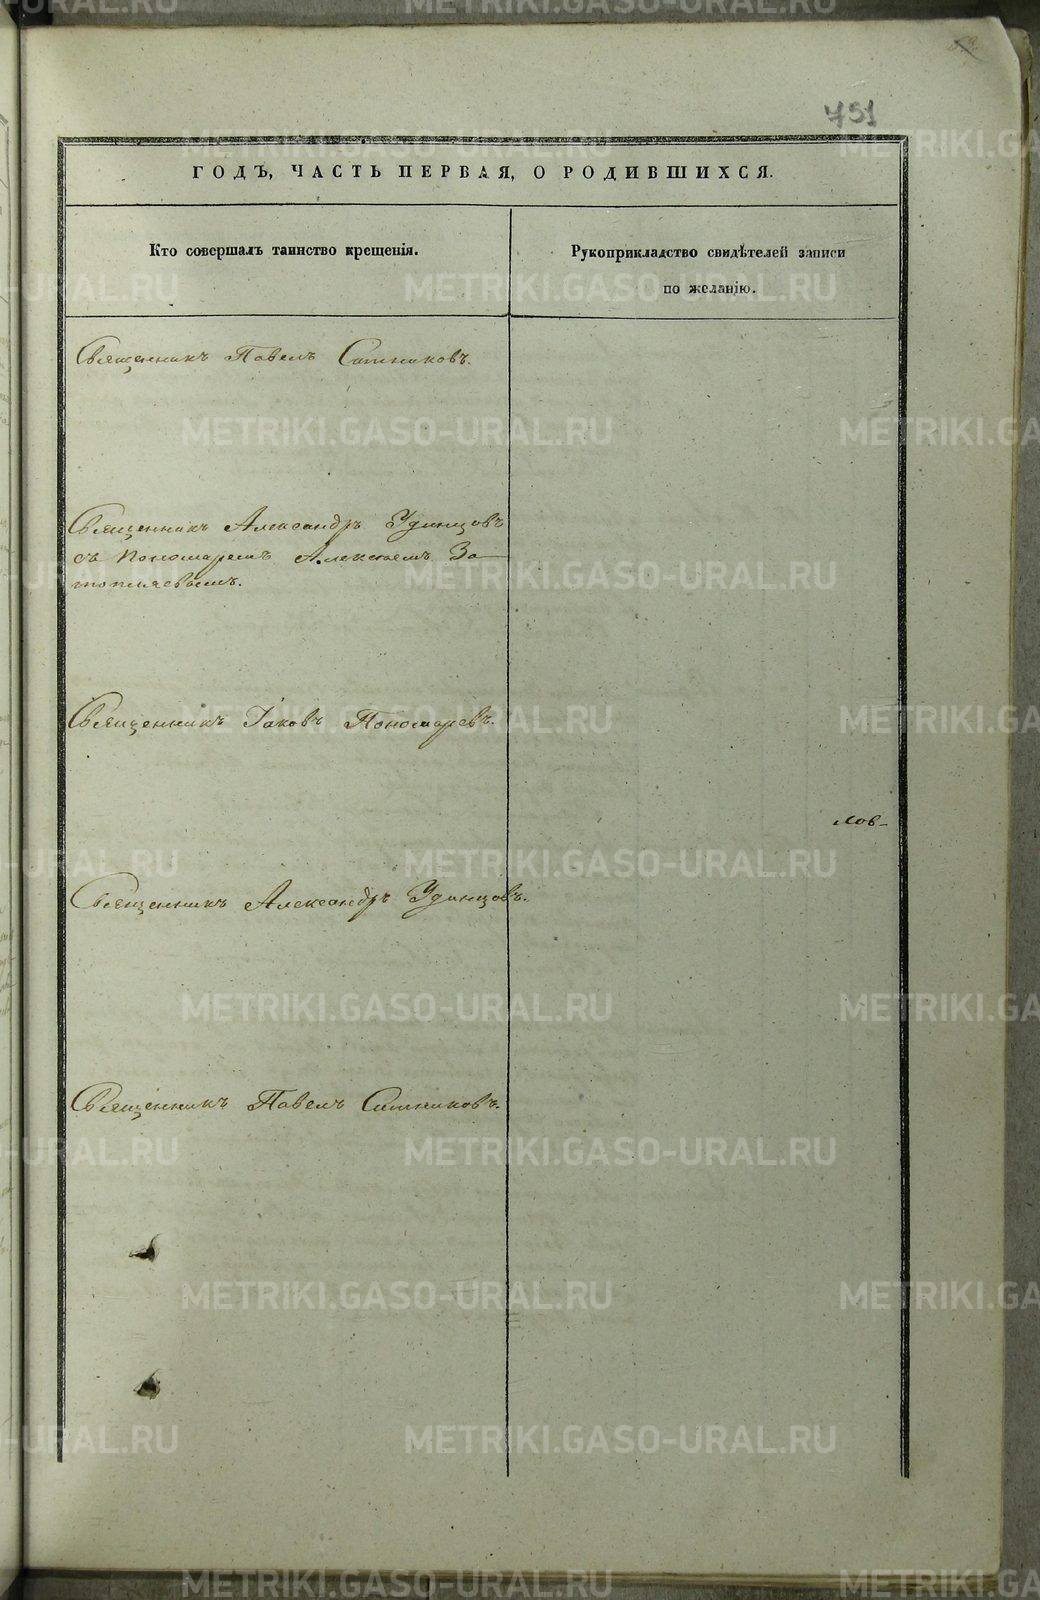 751
ГОДЪ, ЧАСТЬ ПЕРВАЯ, О РОДИВШИХСЯ.
Кто совершалъ таинство крещенія.
Рукоприкладство свидѣтелей записи
по желанію.
Священникъ Павелъ Ситниковъ.
Священникъ Александръ Удинцовъ
съ Пономаремъ Алексѣемъ За-
топляевымъ.
Священникъ Іаковъ Пономаревъ.
лов-
Священникъ Александръ Удинцовъ.
Священникъ Павелъ Ситниковъ.
METRIKI.GASO-URAL.RU